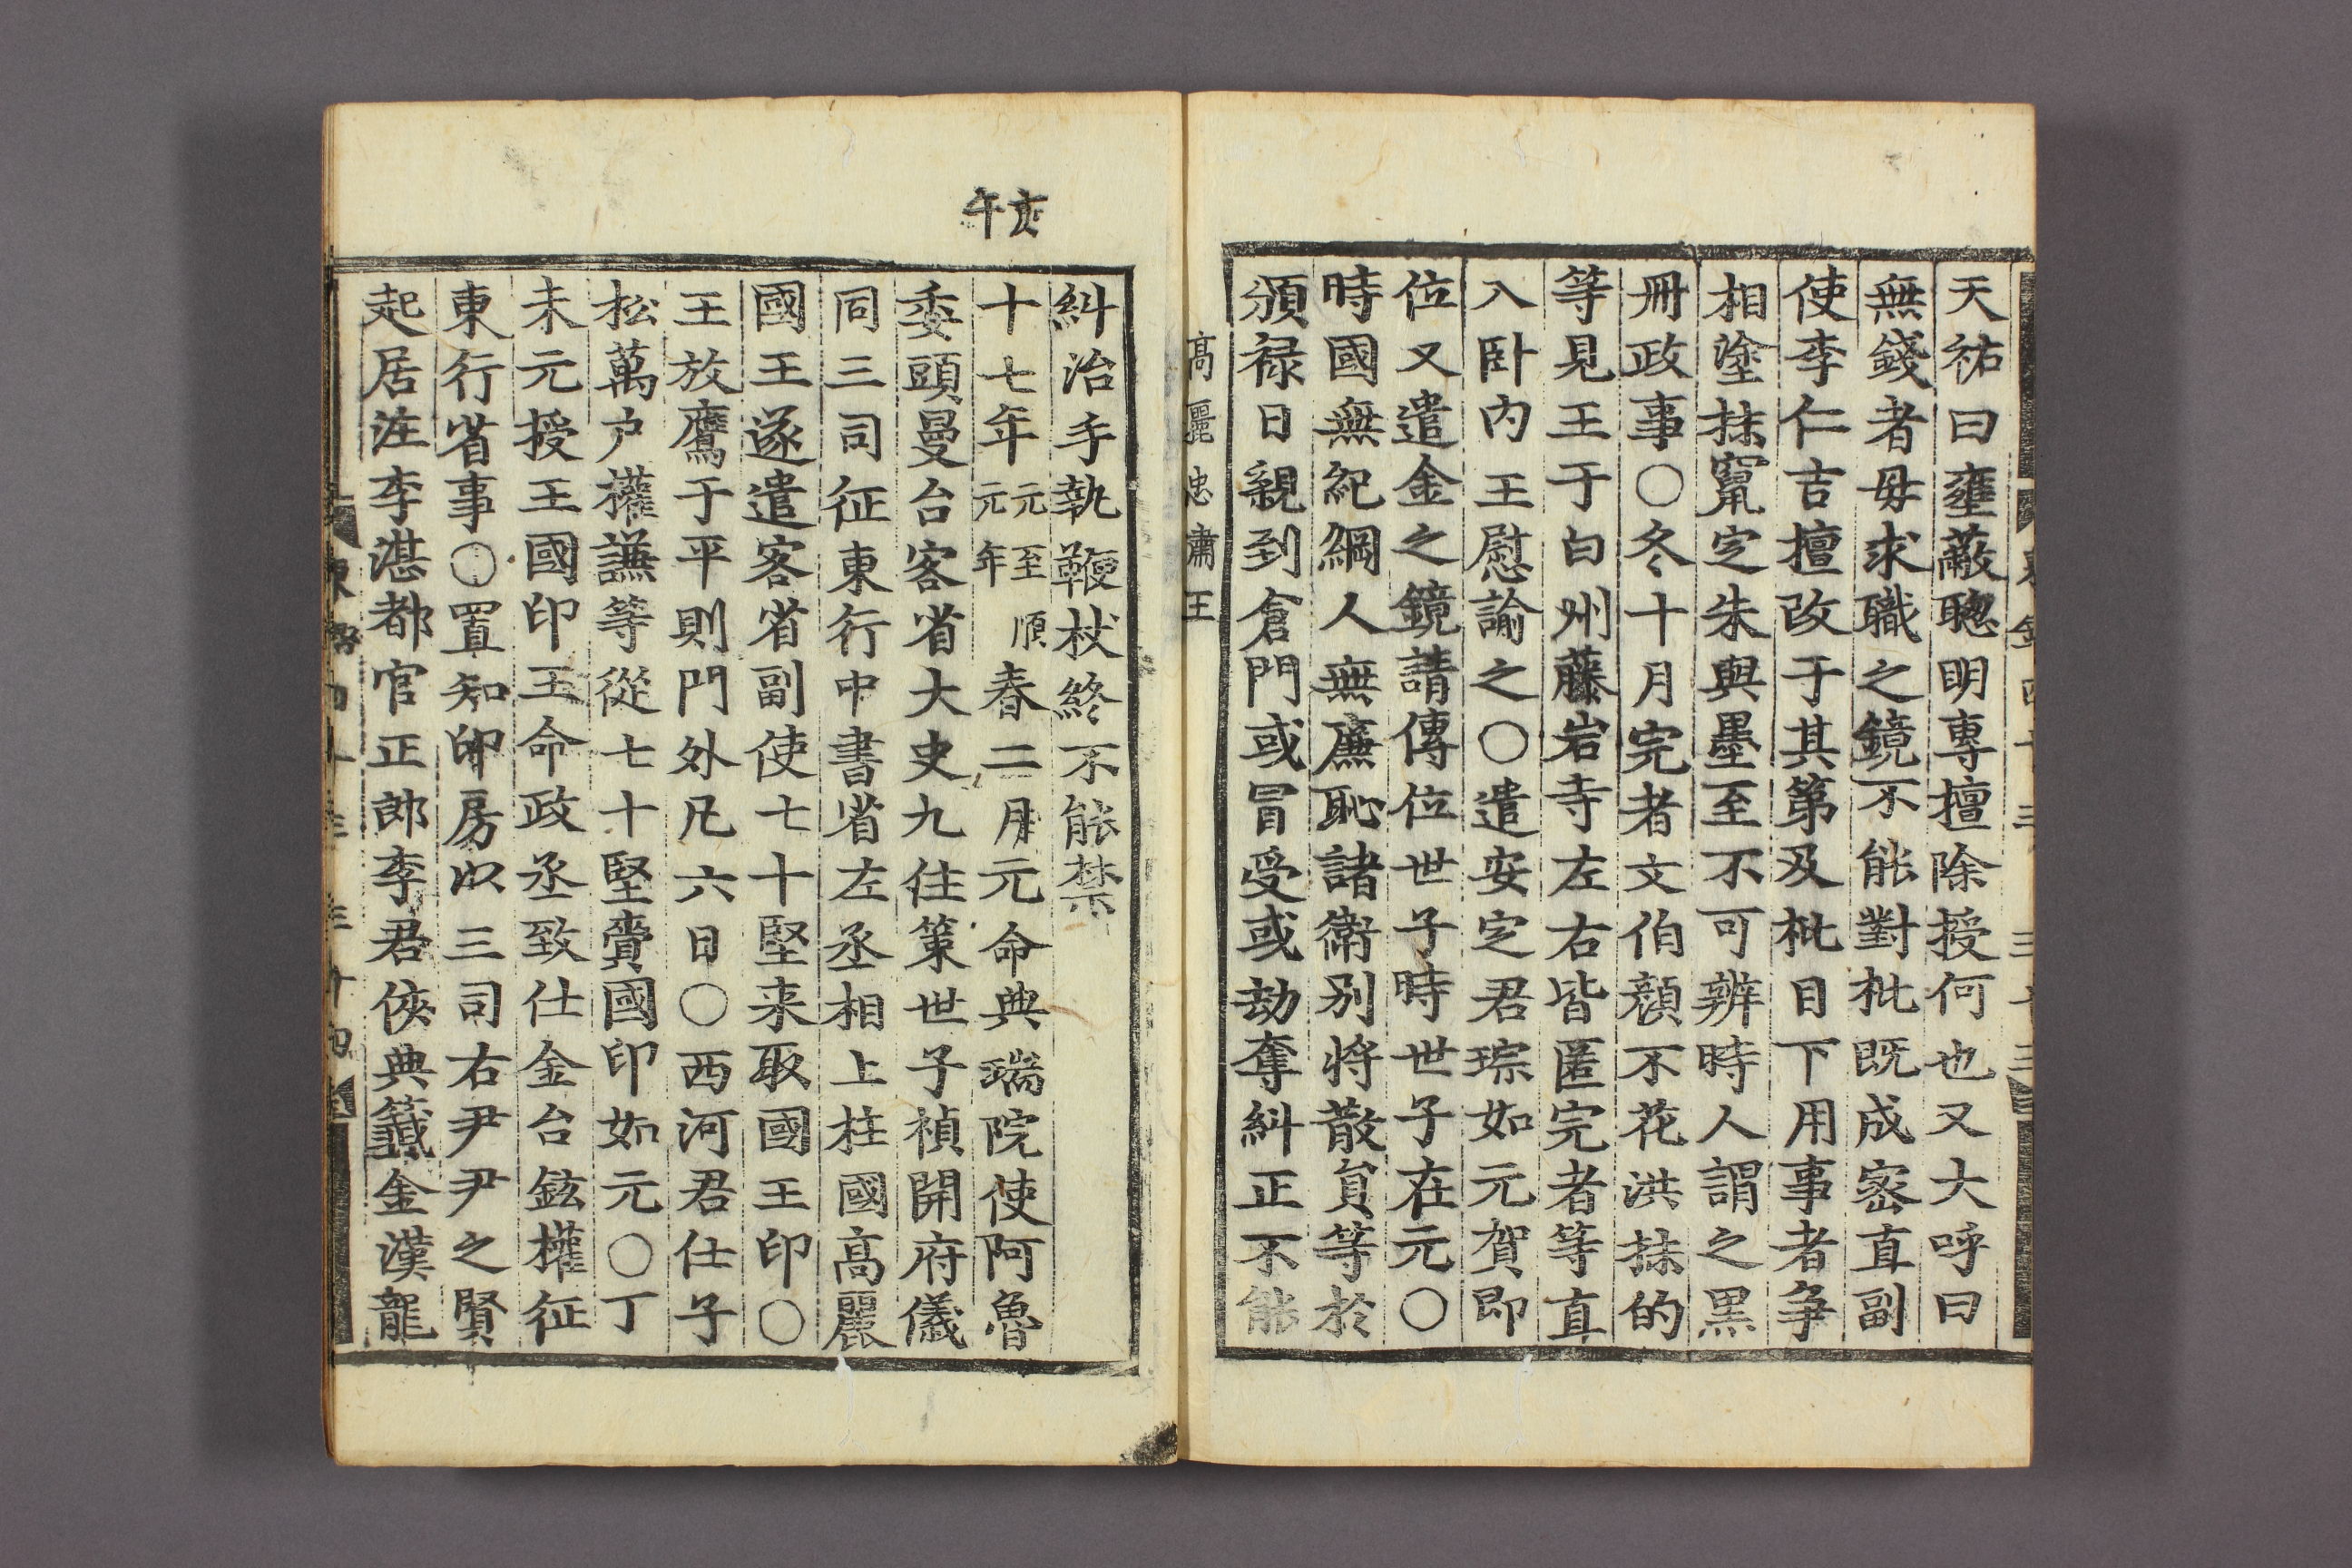 天祐曰壅蔽聦明專擅除授何也又大呼曰
無錢者毋求職之鏡不能對批既成密直副
使李仁吉擅改于其第及批目下用事者争
相塗抹竄定朱與墨至不可辨時人謂之黒
冊政事〇冬十月完者文伯顔不花洪抹的
等見王于白州藤岩寺左右皆匿完者等直
入卧内王慰諭之〇遣安定君琮如元賀即
位又遣金之鏡請傳位世子時世子在元〇
時國無紀綱人無廉恥諸衛别将散貟等於
頒禄日親到倉門或冒受或劫奪糾正不能
高麗忠肅王
亥
午
糾治手執鞭杖終不能禁
十七年元至順元年春二月元命典瑞院使阿魯
委頭曼台客省大史九住策世子禎開府儀
同三司征東行中書省左丞相上柱國高麗
國王遂遣客省副使七十堅来取國王印〇
王放鷹于平則門外凡六日〇西河君仕子
松萬户權謙等從七十堅賫國印如元〇丁
未元授王國印王命政丞致仕金台鉉權征
東行省事〇置知印房以三司右尹尹之賢
起居注李湛都官正郎李君俠典籤金漢龍